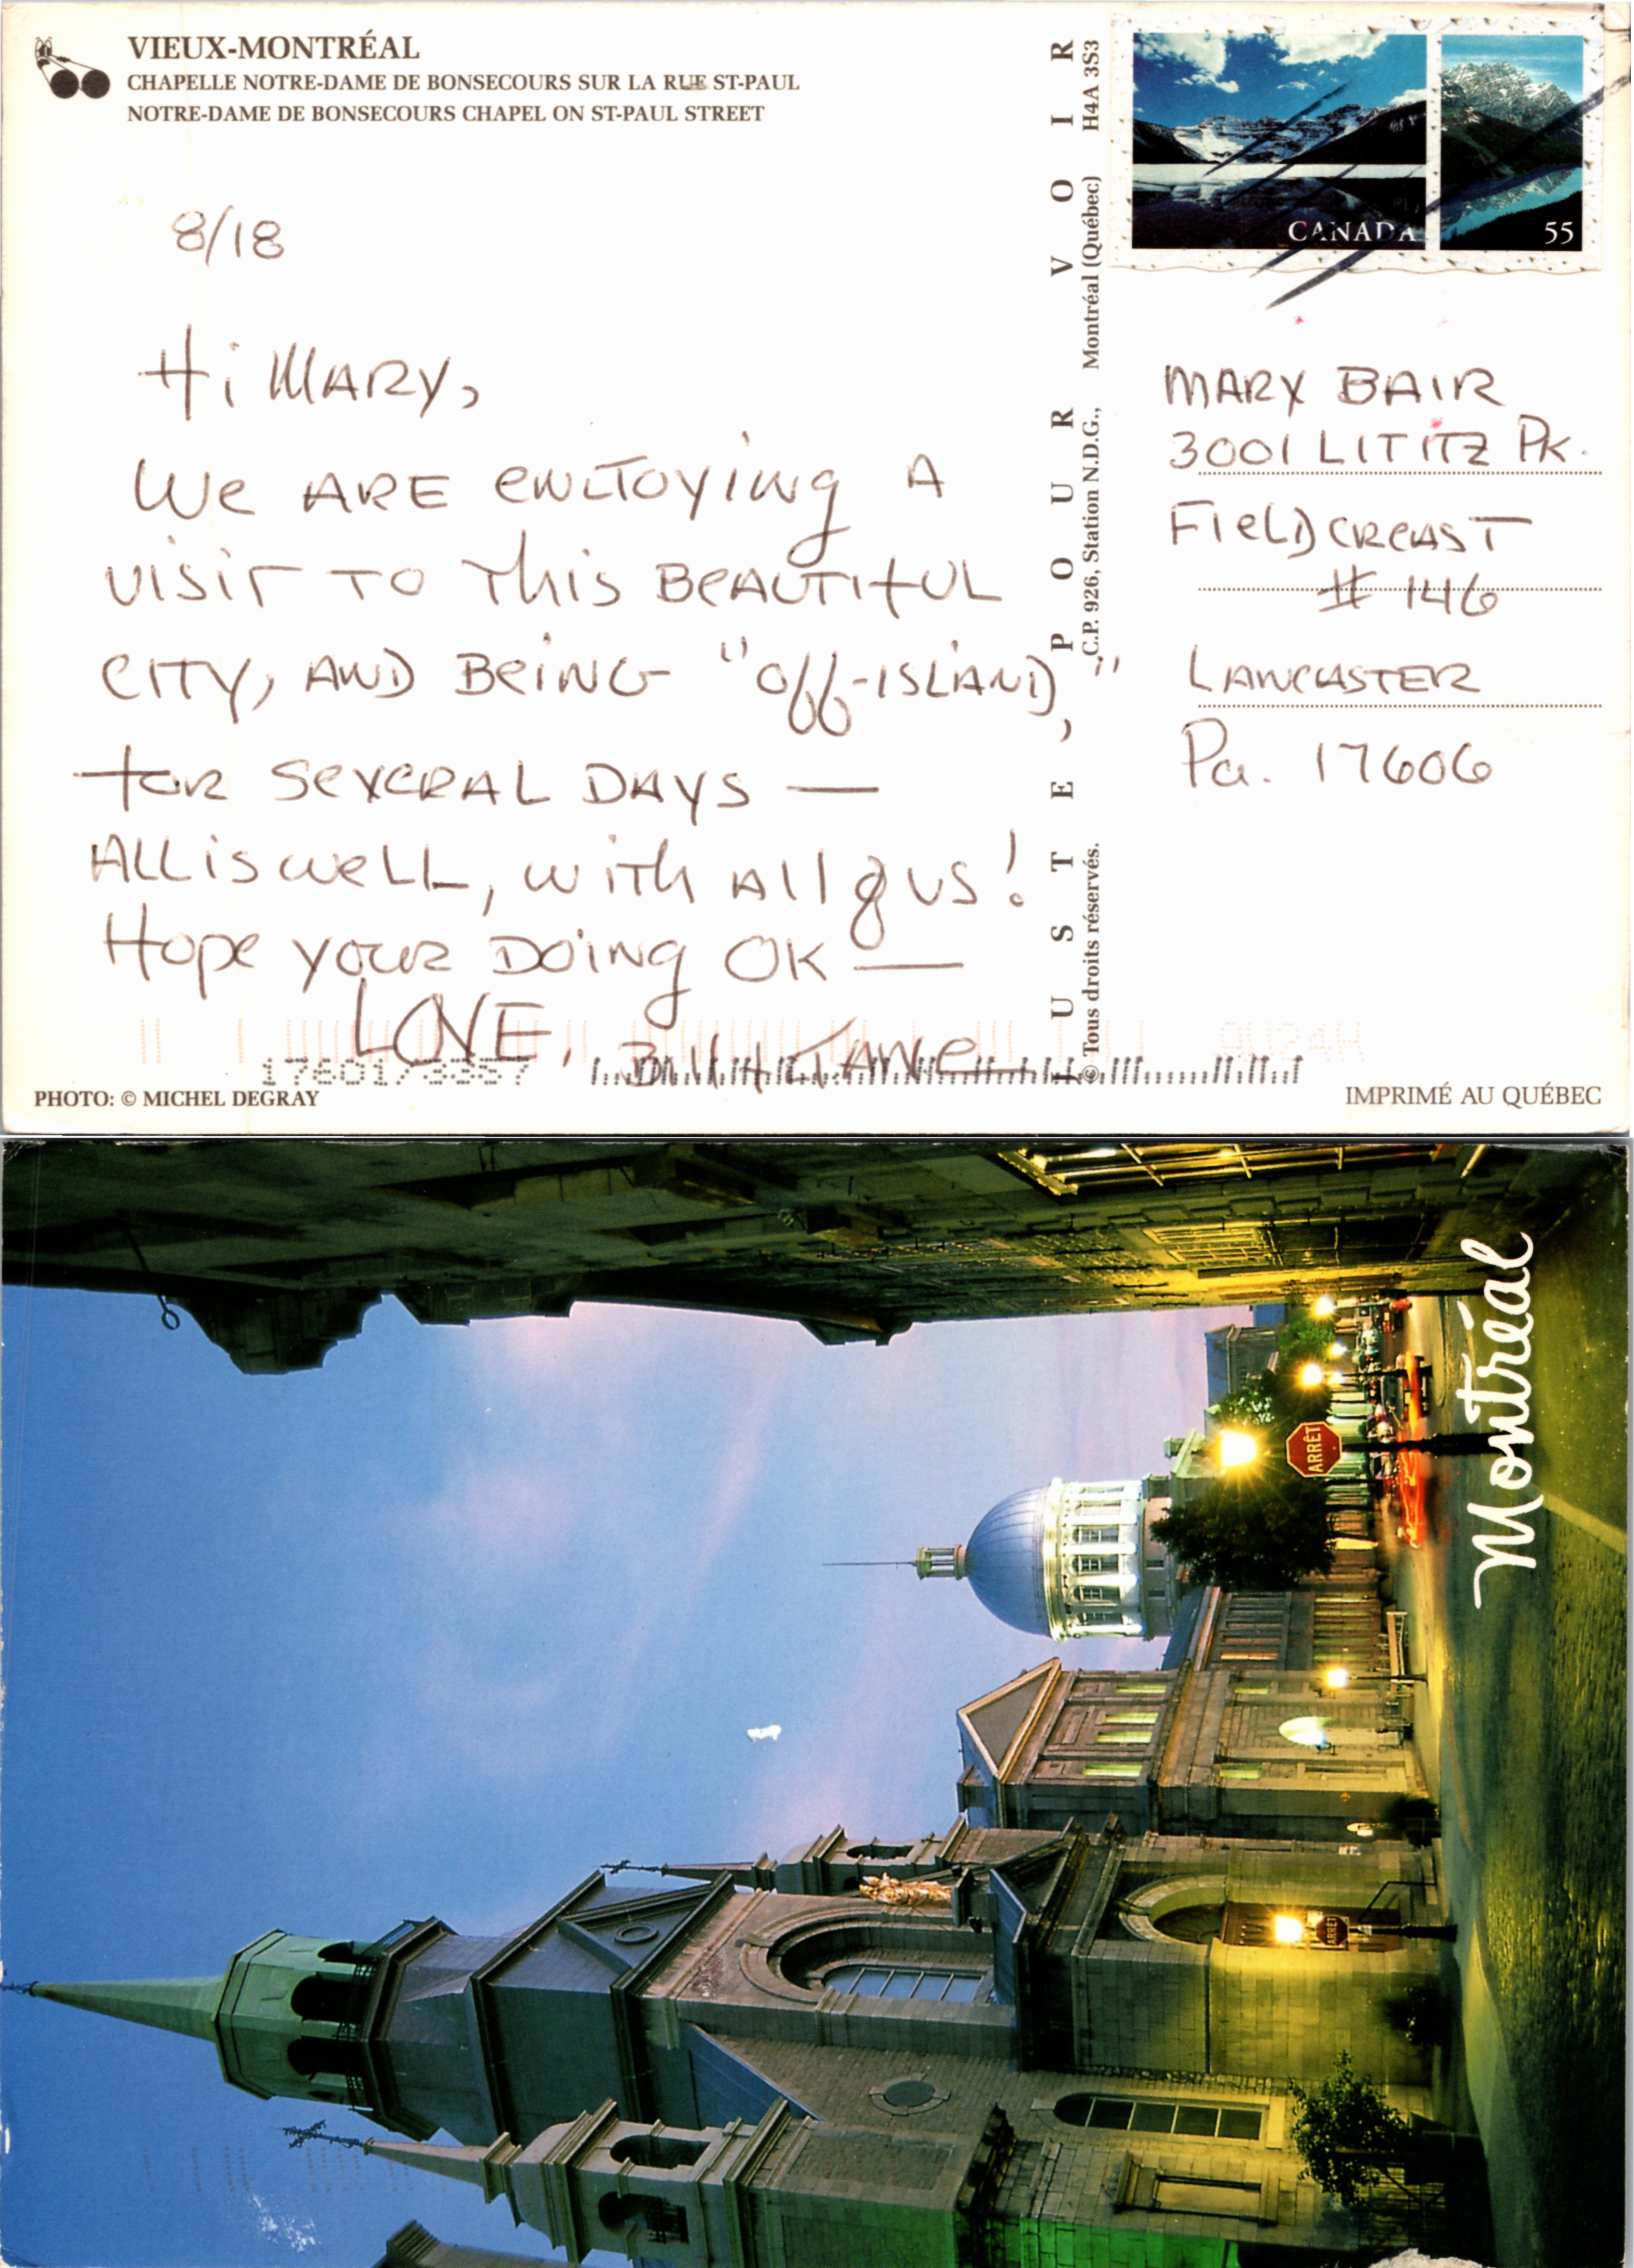 VIEUX-MONTRÉAL
CHAPELLE NOTRE-DAME DE BONSECOURS SUR LA RUE ST-PAUL
NOTRE-DAME DE BONSECOURS CHAPEL ON ST-PAUL STREET
8/18
Hi MARY,
We ARE enJoying A
visit TO This BeAUTifUL
CITY, AND BeiNG "Off-ISLAND,"
for SeVeRAL DAYS —
ALL is well, with All of us!
Hope your Doing OK —
LOVE,
Bill & Jane
PHOTO: © MICHEL DEGRAY
JUSTE, POUR VOIR
© Tous droits réservés. C.P. 926, Station N.D.G., Montréal (Québec) H4A 3S3
CANADA 55
MARY BAIR
3001 LITITZ PK.
FieLDCREAST
# 146
LANCASTER
Pa. 17606
IMPRIMÉ AU QUÉBEC
Montréal
ARRÊT
ARRÊT